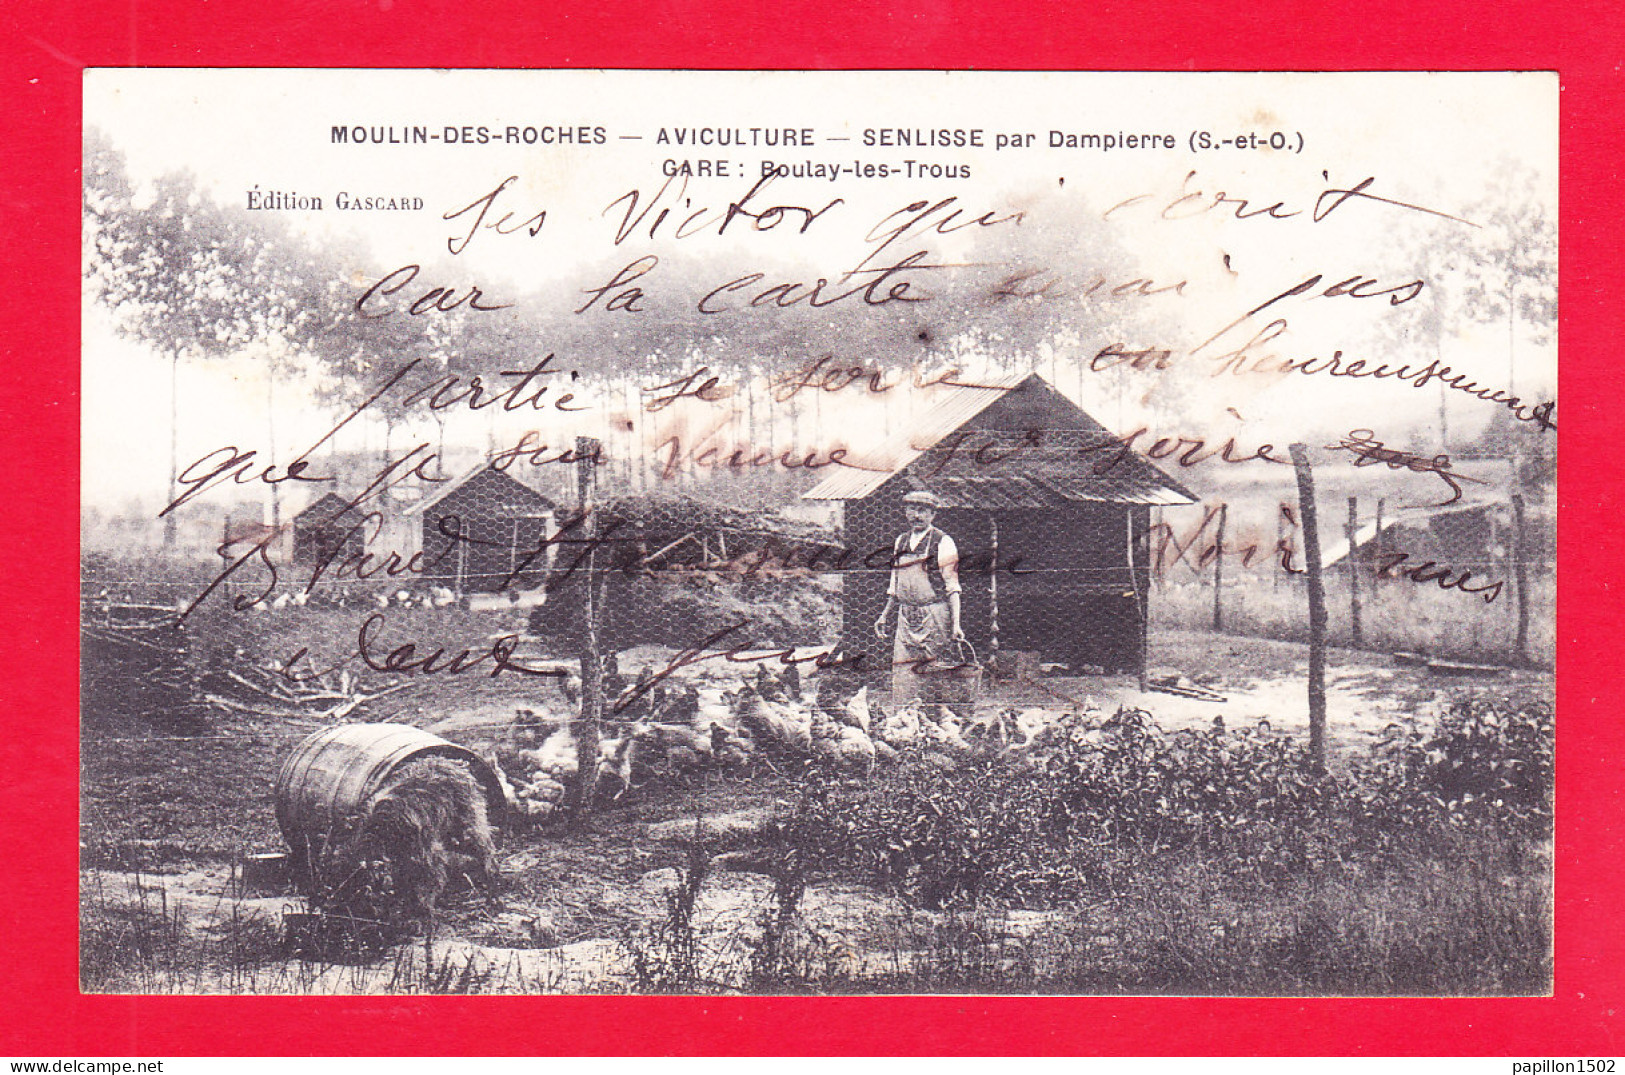 MOULIN-DES-ROCHES — AVICULTURE — SENLISSE par Dampierre (S.-et-O.)
GARE : Boulay-les-Trous
Édition GASCARD
Ses Victor qui écrit
car sa carte serai pas
partie se soire on heureusement
que je suis venue si soire
Bfard Hausmann Voir nus
deux
delcampe.net
papillon1502